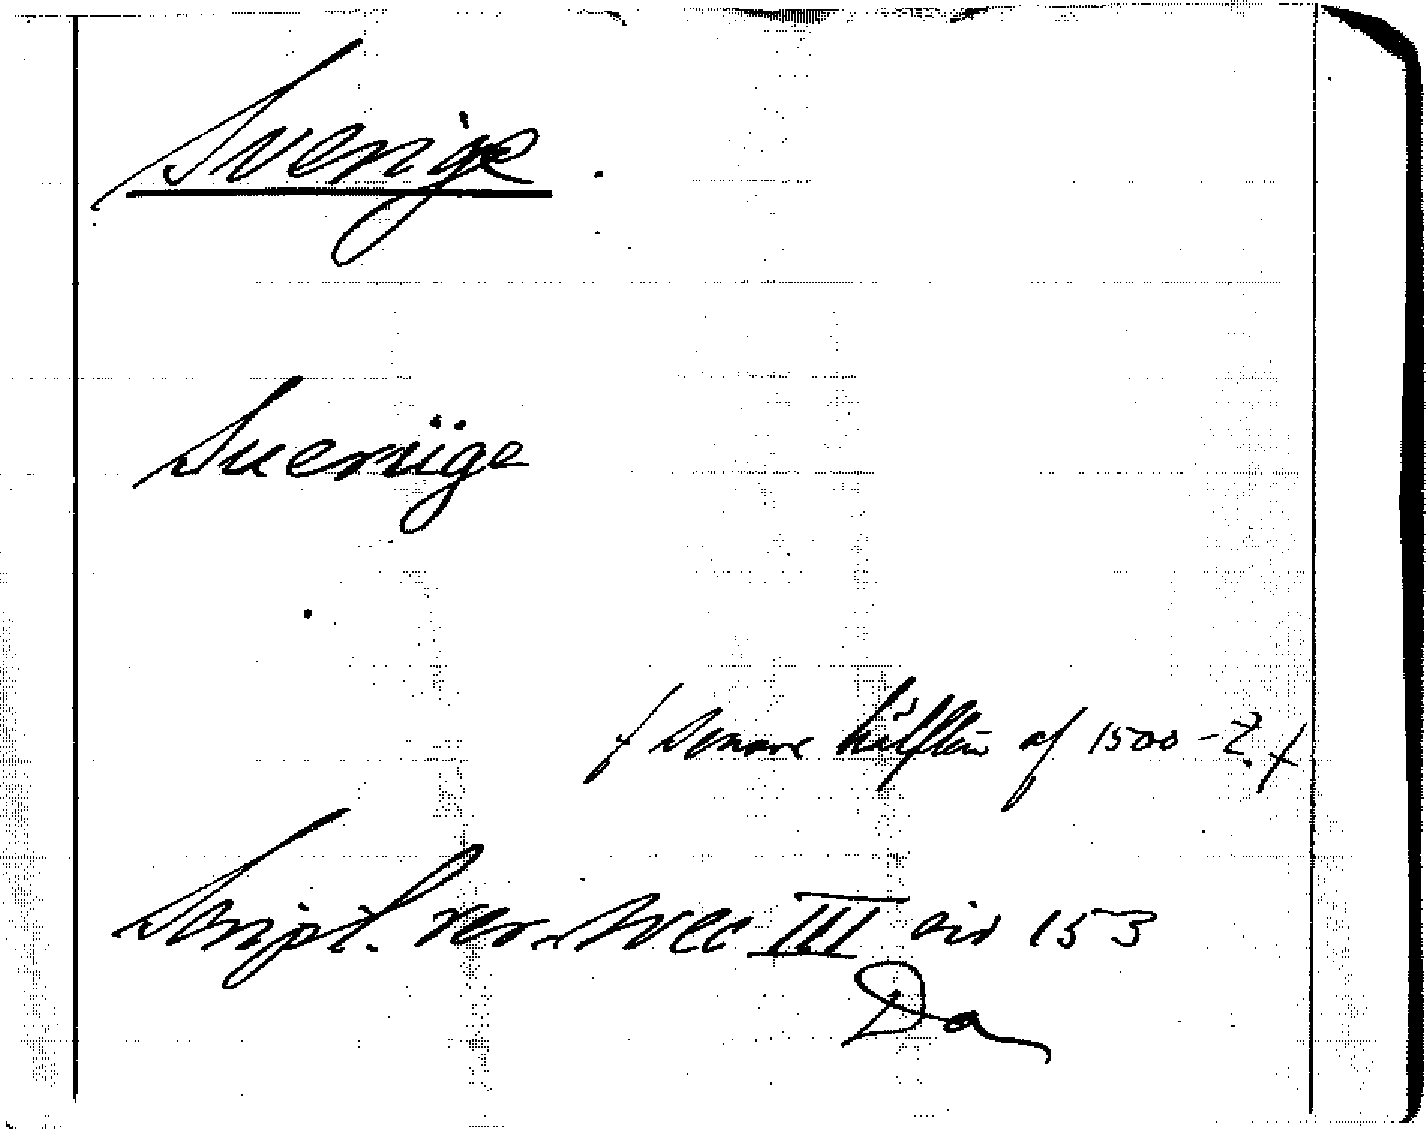 Sverige
Sueriige
/ senare hälften af 1500-t. /
Script. rer. svec III sid 153
Da